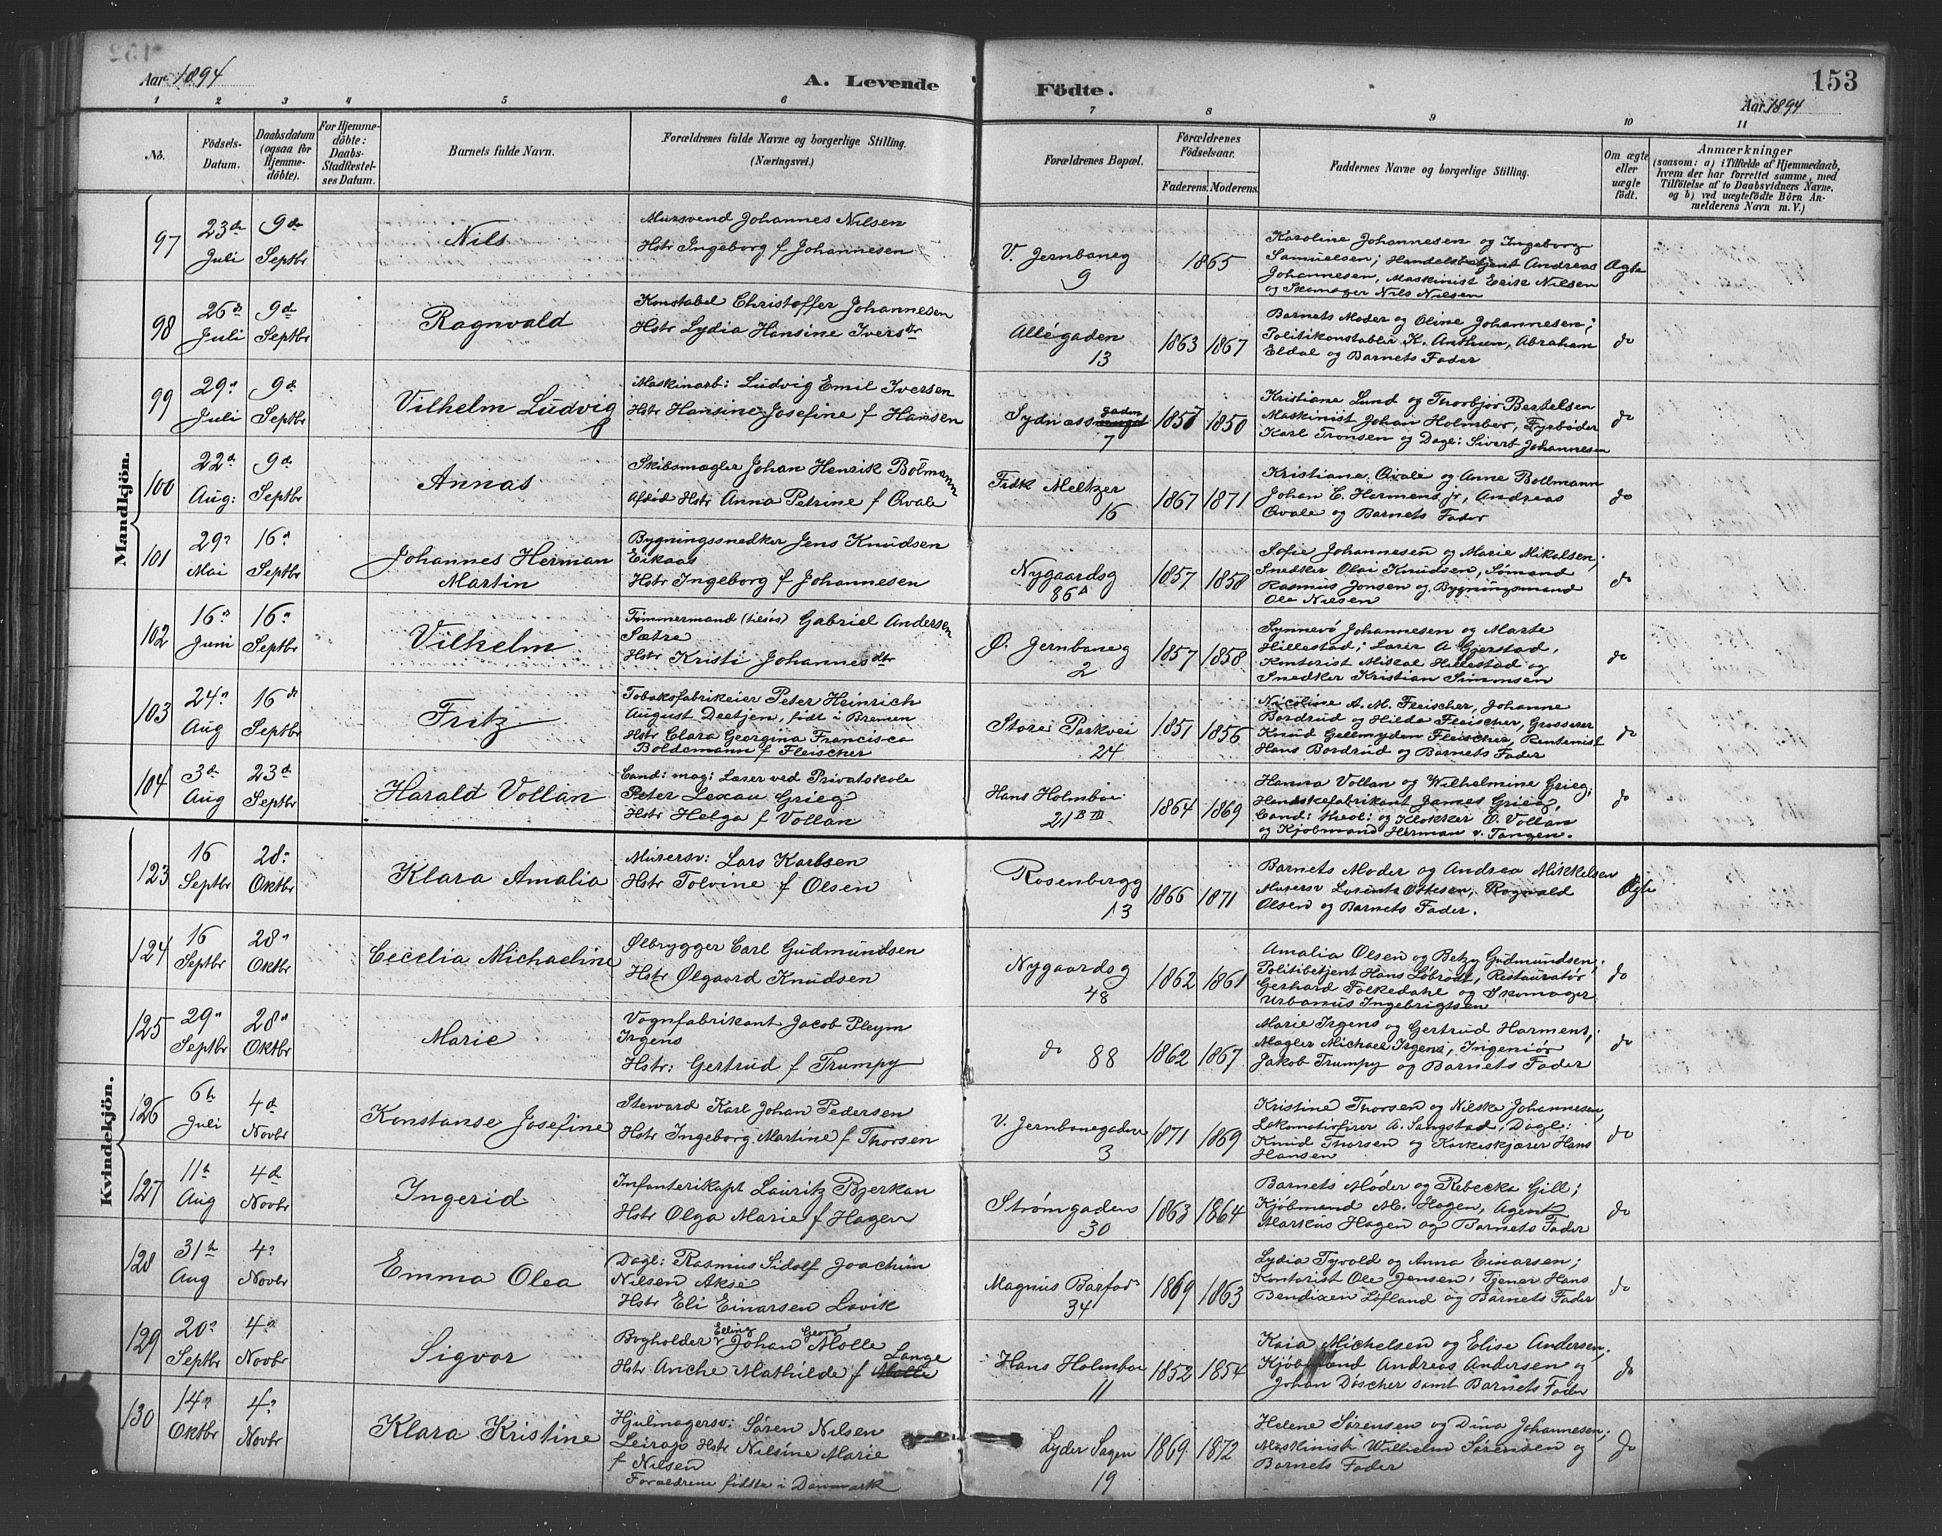 Aar 1894
A. Levende
Födte.
153
Aar 1894
1 2 3 4 5 6 7 8 9 10 11
No.
Födsels-
Datum.
Daabsdatum
(ogsaa for
Hjemme-
döbte).
For Hjemme-
döbte:
Daabs-
Stadfæstel-
ses Datum.
Barnets fulde Navn.
Forældrenes fulde Navne og borgerlige Stilling.
(Næringsvei.)
Forældrenes Bopæl.
Forældrenes
Födselsaar.
Faderens. Moderens.
Faddernes Navne og borgerlige Stilling.
Om ægte
eller
uægte
födt.
Anmærkninger
(saasom: a) i Tilfælde af Hjemmedaab,
hvem der har forrettet samme, med
Tilföielse af to Daabsvidners Navne.
og b) ved uægtefödte Börn An-
melderens Navn m. V.)
Mandkjön.
97
23de Juli
9de Septbr
Nils
Mursvend Johannes Nilsen
Hstr Ingeborg f Johannesen
V. Jernbaneg
9
1865
Karoline Johannesen og Ingeborg
Samuelsen; Handelsbetjent Andreas
Johannesen, Maskinist Erik Nilsen
og Skomager Nils Nilsen
Ægte
98
26de Juli
9de Septbr
Ragnvald
Konstabel Christoffer Johannesen
Hstr Lydia Hansine Iversdtr
Allégaden
13
1863 1867
Barnets Moder og Oline Johannesen;
Politikonstabler K. Anthun, Abraham
Eldal og Barnets Fader
do
99
29de Juli
9de Septbr
Vilhelm Ludvig
Maskinarb: Ludvig Emil Iversen
Hstr Hansine Josefine f Hansen
Sydnæssgaden
7
1857 1850
Kristiane Lund og Thorbjør Bertelsen
Maskinist Johan Holmber, Fyrbøder
Karl Tronsen og Dagl: Sivert Johannesen
do
100
22de Aug:
9de Septbr
Annas
Skibsmægler Johan Henrik Bölmann
Afdöd Hstr Anna Petrine f Qvale
Fridk Meltzer
16
1867 1871
Kristiane Qvale og Anne Bollmann
Johan C. Hermens jr, Andreas
Qvale og Barnets Fader
do
101
29de Mai
16de Septbr
Johannes Herman
Martin
Bygningssnedker Jens Knudsen
Eikaas
Hstr Ingeborg f Johannesen
Nygaardsg
86A
1857 1858
Sofie Johannesen og Marie Mikalsen;
Snedker Olai Knudsen, Sømand
Rasmus Jonsen og Bygningsmand
Ole Nilsen
do
102
16de Juni
16de Septbr
Vilhelm
Tømmermand (løs) Gabriel Andersen
Sætre
Hstr Kristi Johannesdtr
Ø. Jernbaneg
2
1857 1858
Synnevø Johannesen og Marte
Hillestad; Lærer A Gjerstad,
Kontorist Mikal Hillestad og
Snedker Kristian Simmsen
do
103
24de Aug
16de Septbr
Fritz
Tobaksfabrikeier Peter Heinrich
August Deetjen, født i Bremen
Hstr Clara Georgina Francisca
Boldemann f Fleischer
Store Parkvei
24
1851 1856
Nicoline A. M. Fleischer, Johanne
Bordrud og Hilda Fleischer, Grosserer
Knud Geelmyden Fleischer, Rentenist
Hans Bordrud og Barnets Fader
do
104
3de Aug
23de Septbr
Harald Vollan
Cand: mag: Lærer ved Privatskole
Peter Lexau Grieg
Hstr Helga f Vollan
Hans Holmboe
21B III
1864 1869
Hanna Vollan og Wilhelmine Grieg;
Handskefabrikant James Grieg,
Cand: theol: og Klokker O. Vollan
og Kjøbmand Herman v. Tangen.
do
Kvindekjön.
123
16 Septbr
28de Oktbr
Klara Amalia
Murersv: Lars Karlsen
Hstr Tolvine f Olsen
Rosenbergg
13
1866 1871
Barnets Moder og Andrea Mikkelsen
Murersv Lorentz Ottesen, Ragnvald
Olsen og Barnets Fader.
Ægte
124
16 Septbr
28de Oktbr
Cecelia Michaeline
Ølbrygger Carl Gudmundsen
Hstr Ølgaard Knudsen
Nygaardsg
48
1862 1861
Amalia Olsen og Betzy Gudmundsen;
Politibetjent Hans Løbrodt, Restauratør
Gerhard Folkedahl og Skomager
Urbanus Ingebrigtsen
do
125
29de Septbr
28de Oktbr
Marie
Vognfabrikant Jacob Pleym
Irgens
Hstr: Gertrud f Trumpy
do 88
1862 1867
Marie Irgens og Gertrud Harmens;
Mægler Michael Irgens, Ingeniør
Jakob Trumpy og Barnets Fader
do
126
6te Juli
4de Novbr
Konstanse Josefine
Steward Karl Johan Pedersen
Hstr Ingeborg Martine f Thorsen
V. Jernbanegaden
3
1871 1869
Kristine Thorsen og Nilske Johannesen,
Lokomotivfører A. Sangstad, Dagl:
Knud Thorsen og Karkiskjører Hans
Hansen
do
127
11te Aug
4de Novbr
Ingerid
Infanterikapt Lauritz Bjerkan
Hstr Olga Marie f Hagen
Strømgaden
30
1863 1864
Barnets Moder og Rebecka Gill;
Kjøbmand M. Hagen, Agent
Markus Hagen og Barnets Fader
do
128
31te Aug
4de Novbr
Emma Olea
Dagl: Rasmus Sidolf Joachim
Nilsen Akse
Hstr Eli Einarsen Lavik
Magnus Barfods
34
1869 1863
Lydia Tyvold og Anna Einarsen;
Kontorist Ole Jensen, Tjener Hans
Bendixen Løfland og Barnets Fader
do
129
20de Septbr
4de Novbr
Sigvor
Bogholder Elling Johan Georg Molle
Hstr Anche Mathilde f Molle Lange
Hans Holmboe
11
1852 1854
Kaia Michelsen og Elise Andersen,
Kjøbmand Andreas Andersen og
Johan Döscher samt Barnets Fader
do
130
14de Oktbr
4de Novbr
Klara Kristine
Hjulmagersv: Søren Nilsen
Leirop Hstr Nilsine Marie
f Nilsen
Forældrene fødte i Danmark
Lyder Sagen
19
1869 1872
Helene Sørensen og Dina Johannesen;
Maskinist Wilhelm Sørensen og
Barnets Fader
do